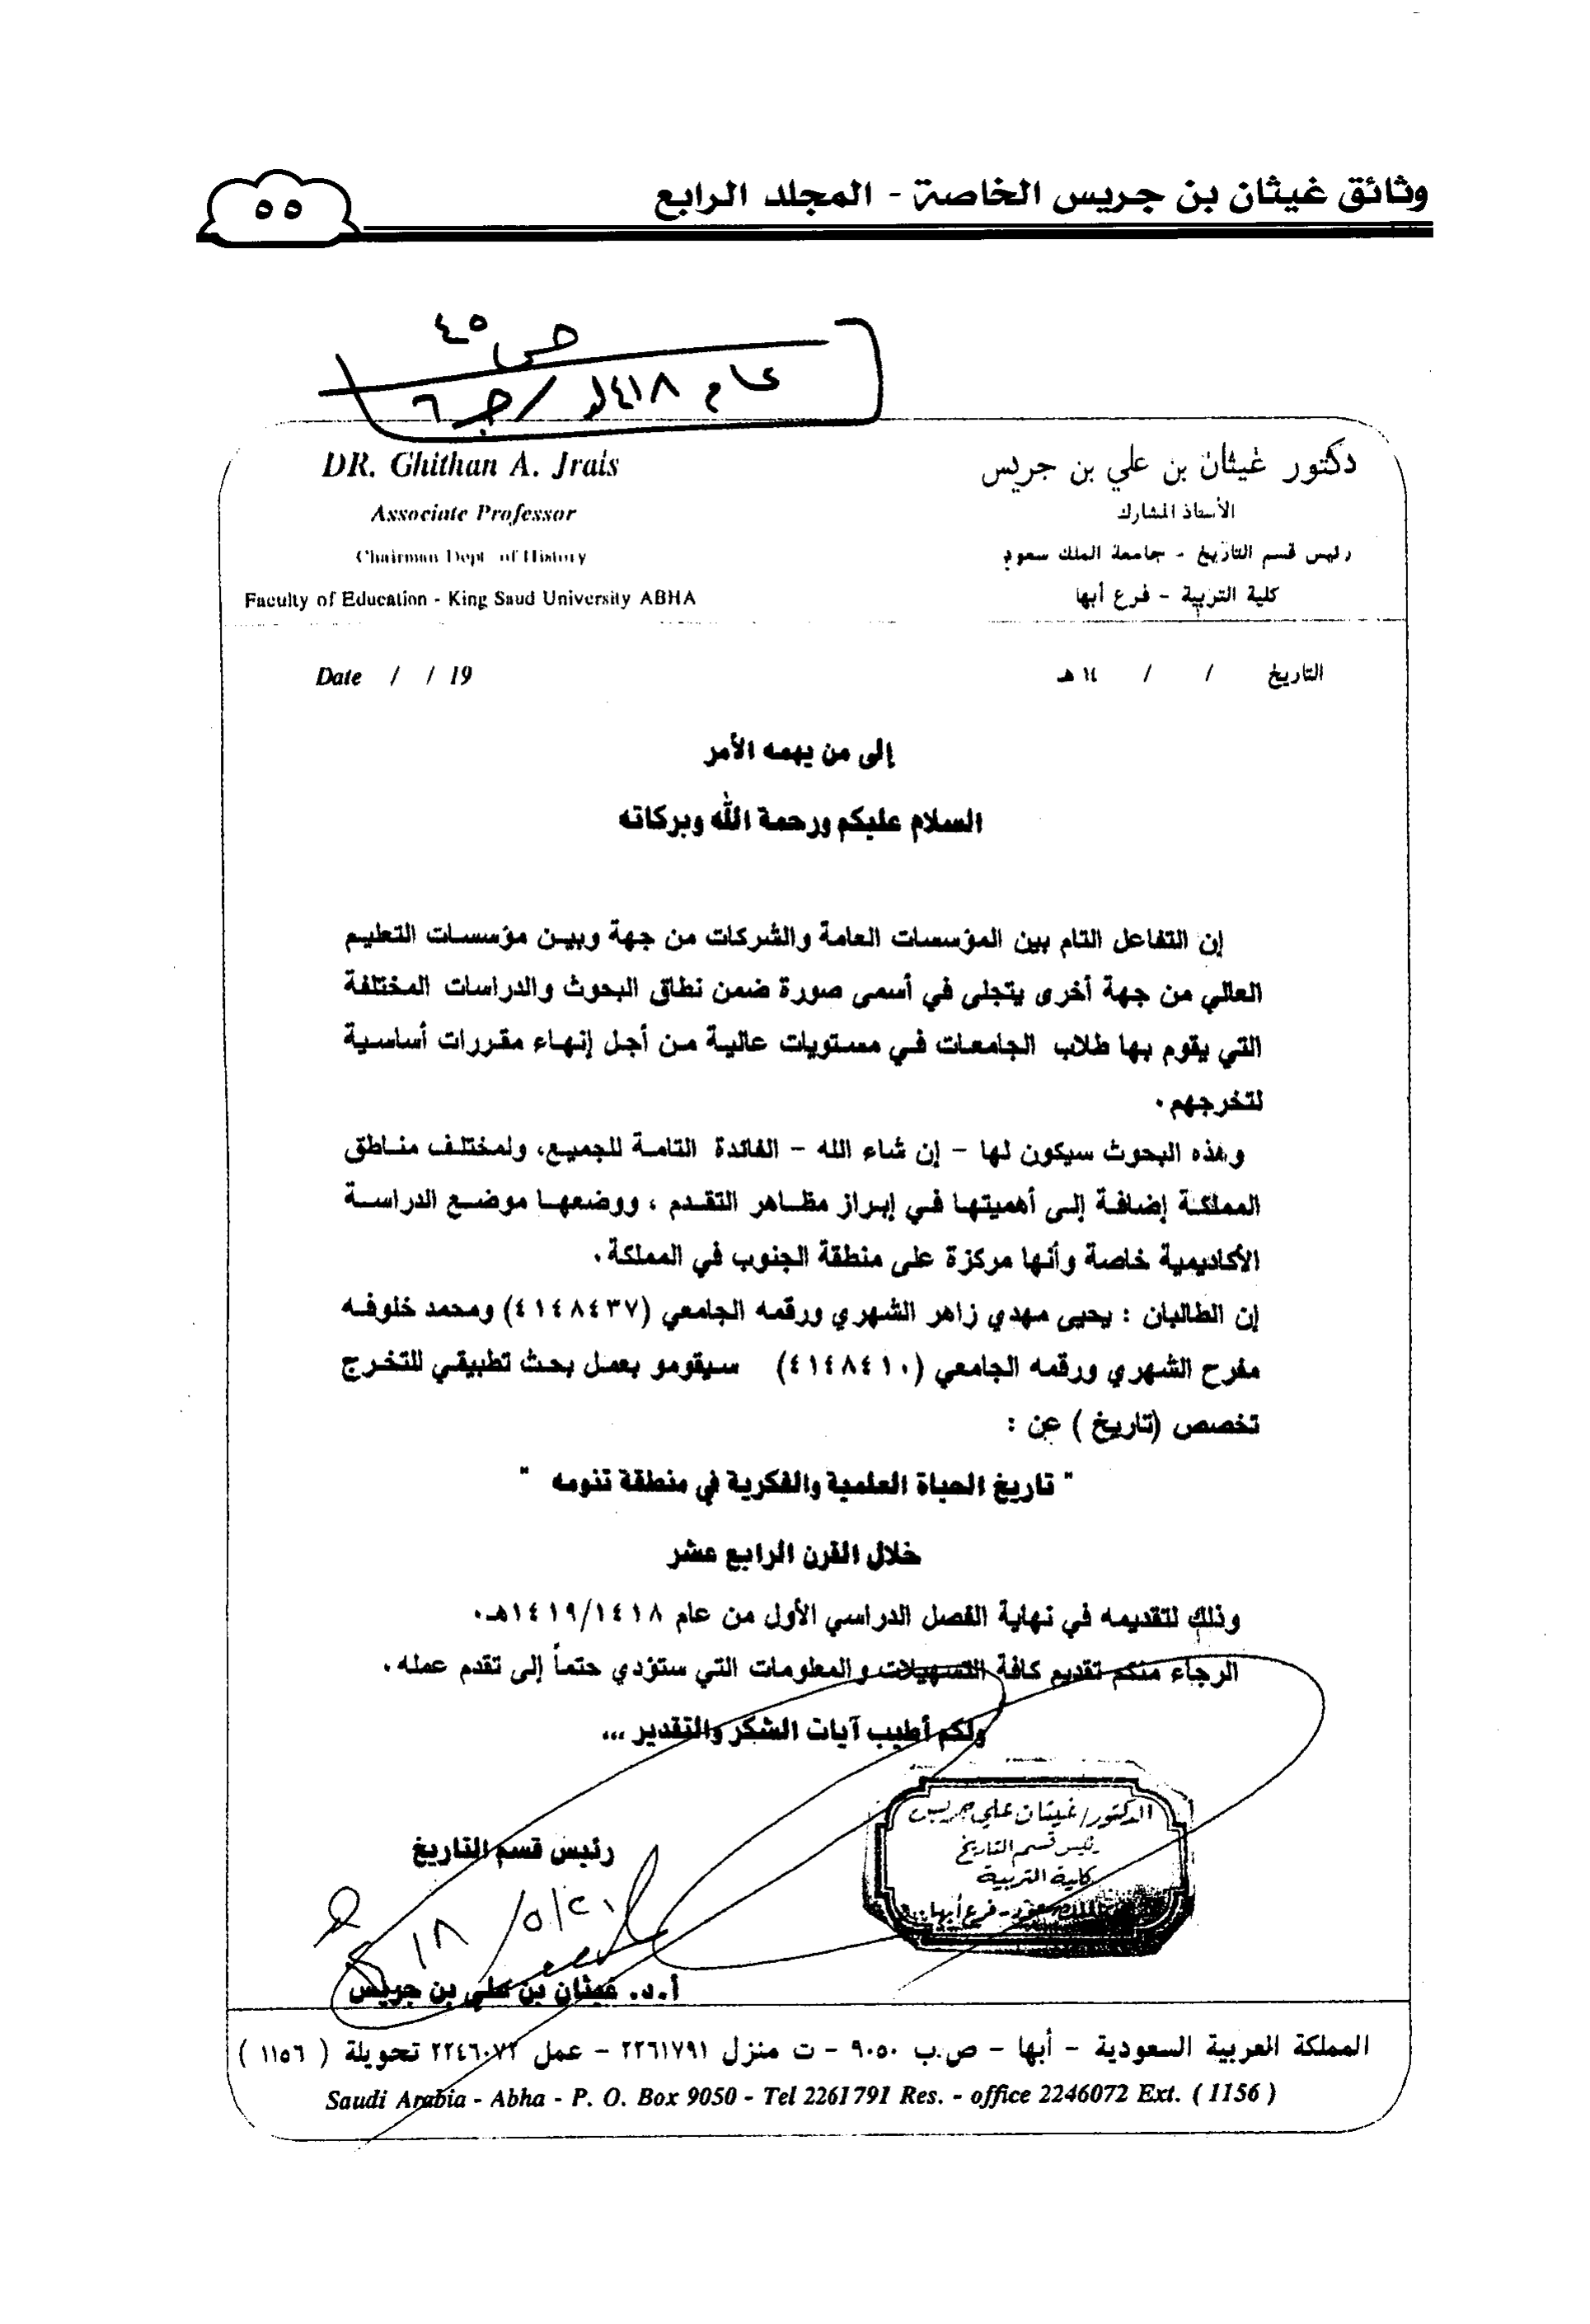 وثائق غيثان بن جريس الخاصة - المجلد الرابع
٥٥
ص ٤٥
عام ١٤١٨هـ / جـ ٦
دكتور غيثان بن علي بن جريس
الأستاذ المشارك
رئيس قسم التاريخ - جامعة الملك سعود
كلية التربية - فرع أبها
DR. Ghithan A. Jrais
Associate Professor
Chairman Dept. of History
Faculty of Education - King Saud University ABHA
التاريخ / / ١٤ هـ
Date / / 19
إلى من يهمه الأمر
السلام عليكم ورحمة الله وبركاته
إن التفاعل التام بين المؤسسات العامة والشركات من جهة وبين مؤسسات التعليم
العالي من جهة أخرى يتجلى في أسمى صورة ضمن نطاق البحوث والدراسات المختلفة
التي يقوم بها طلاب الجامعات في مستويات عالية من أجل إنهاء مقررات أساسية
لتخرجهم .
وهذه البحوث سيكون لها - إن شاء الله - الفائدة التامة للجميع، ولمختلف مناطق
المملكة إضافة إلى أهميتها في إبراز مظاهر التقدم ، ووضعها موضع الدراسة
الأكاديمية خاصة وأنها مركزة على منطقة الجنوب في المملكة .
إن الطالبان : يحيى مهدي زاهر الشهري ورقمه الجامعي (٤١٤٨٤٣٧) ومحمد خلوفه
مفرح الشهري ورقمه الجامعي (٤١٤٨٤١٠) سيقومو بعمل بحث تطبيقي للتخرج
تخصص (تاريخ ) عن :
" تاريخ الحياة العلمية والفكرية في منطقة تنومه "
خلال القرن الرابع عشر
وذلك لتقديمه في نهاية الفصل الدراسي الأول من عام ١٤١٩/١٤١٨هـ .
الرجاء منكم تقديم كافة التسهيلات والمعلومات التي ستؤدي حتماً إلى تقدم عمله .
ولكم أطيب آيات الشكر والتقدير ...
الدكتور/ غيثان علي جريس
رئيس قسم التاريخ
كلية التربية
الملك سعود - فرع أبها
رئيس قسم التاريخ
أ.د. غيثان بن علي بن جريس
المملكة العربية السعودية - أبها - ص.ب ٩٠٥٠ - ت منزل ٢٢٦١٧٩١ - عمل ٢٢٤٦٠٧٢ تحويلة ( ١١٥٦ )
Saudi Arabia - Abha - P. O. Box 9050 - Tel 2261791 Res. - office 2246072 Ext. ( 1156 )